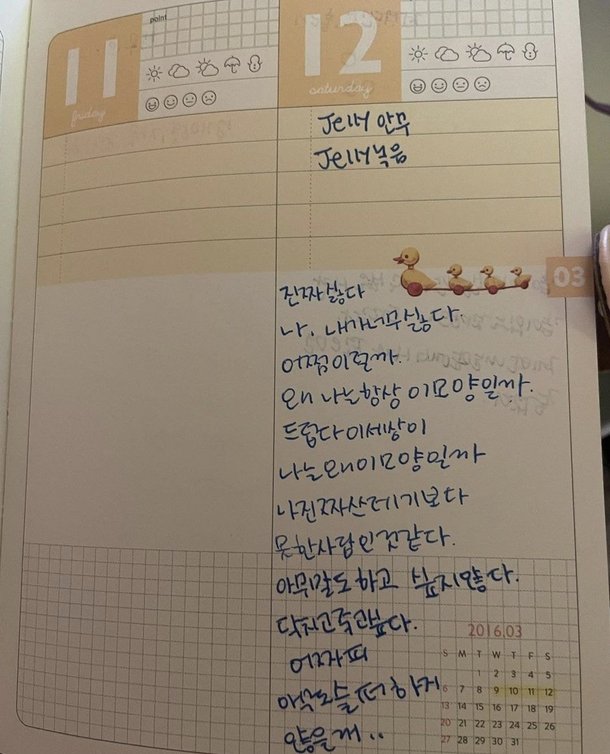 11
point
friday
12
saturday
Jelly 안무
Jelly 녹음
03
진짜싫다
나, 내가너무싫다.
어쩜이럴까.
왜 나는항상 이모양일까.
드럽다이세상이
나는왜이모양일까
나진짜쓰레기보다
못한사람인것같다.
아무말도하고 싶지않다.
닥치고죽고싶다.
어차피
아무도슬퍼하지
않을
2016.03
S M T W T F S
1 2 3 4 5
6 7 8 9 10 11 12
13 14 15 16 17 18 19
20 21 22 23 24 25 26
27 28 29 30 31